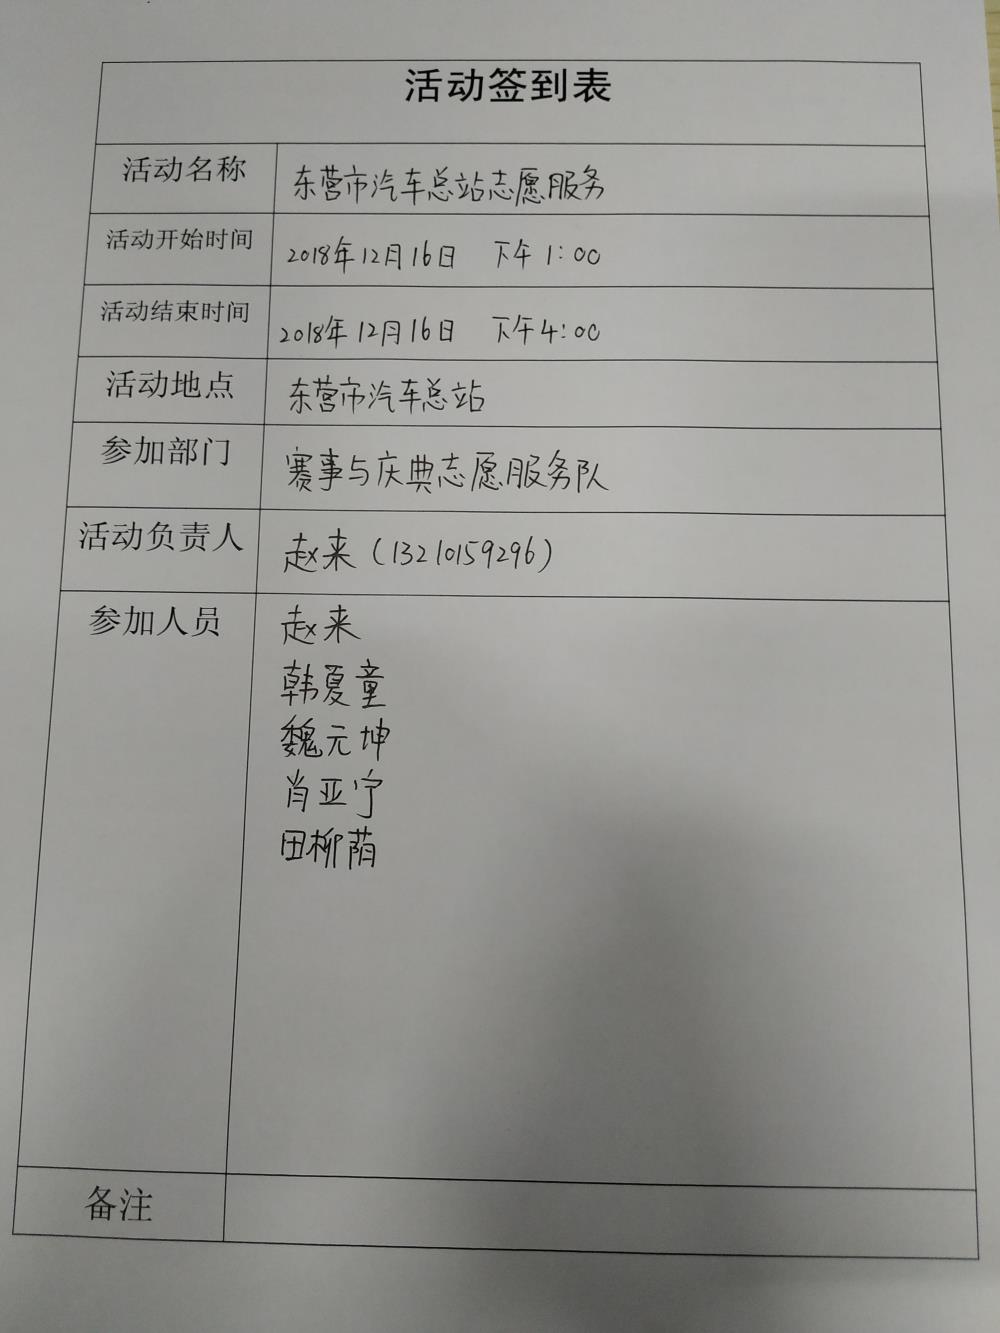 活动签到表
活动名称 东营市汽车总站志愿服务
活动开始时间 2018年12月16日 下午1:00
活动结束时间 2018年12月16日 下午4:00
活动地点 东营市汽车总站
参加部门 赛事与庆典志愿服务队
活动负责人 赵来(13210159296)
参加人员 赵来
韩夏童
魏元坤
肖亚宁
田柳荫
备注